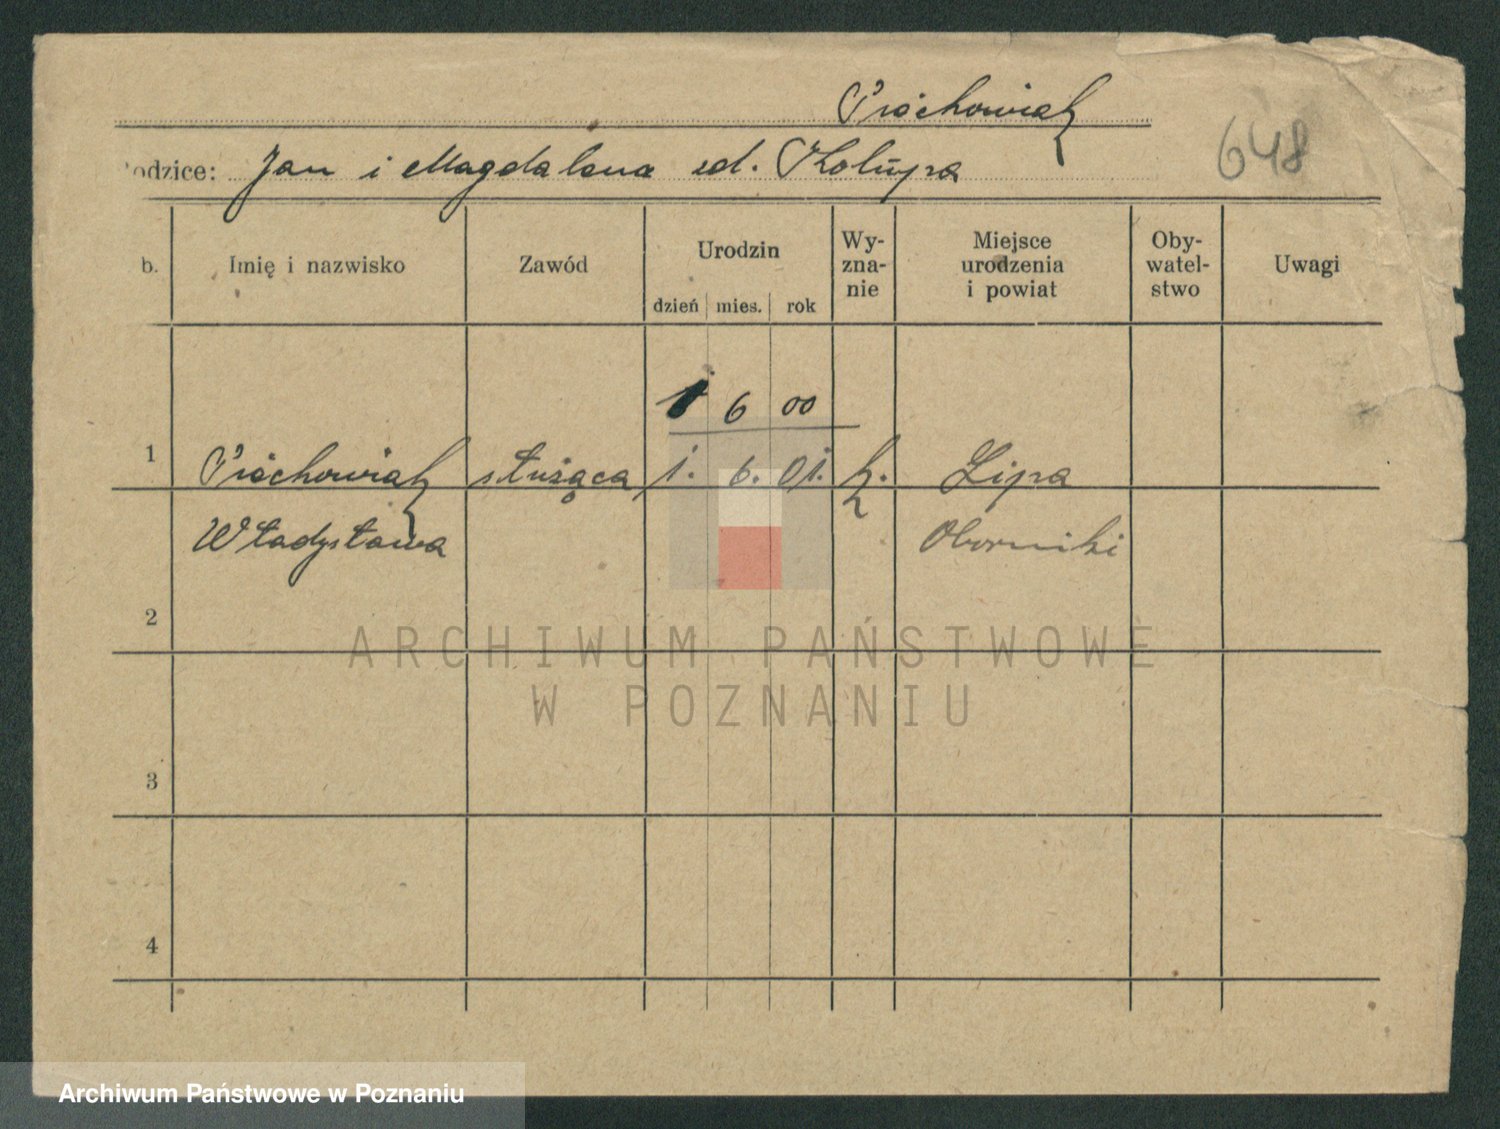 Próchowiak
odzice: Jan i Magdalena zd. Kołupa
648
b. Imię i nazwisko Zawód Urodzin dzień mies. rok Wy-zna-nie Miejsce urodzenia i powiat Oby-watel-stwo Uwagi
1 6 00
1 Próchowiak służąca 1. 6. 01. k. Lipa
Władysława Oborniki
2
ARCHIWUM PAŃSTWOWE
W POZNANIU
3
4
Archiwum Państwowe w Poznaniu